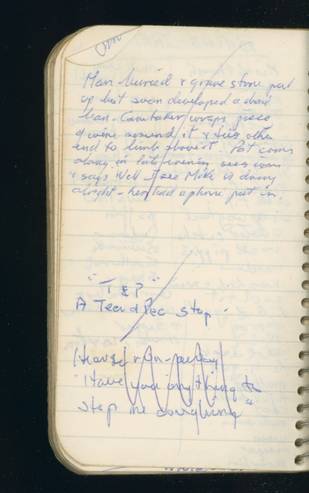 Man buried & grave stone put
up but soon developed a bad
lean. Caretaker wraps piece
of wire around it & ties other
end to limb above it. Pat comes
along in late evening sees wire
& says Well I see Mike is doing
alright - he's had a phone put in.
"T & P"
A Tee and Pee stop.
Hearse
"Have you anything to
stop me coughing"